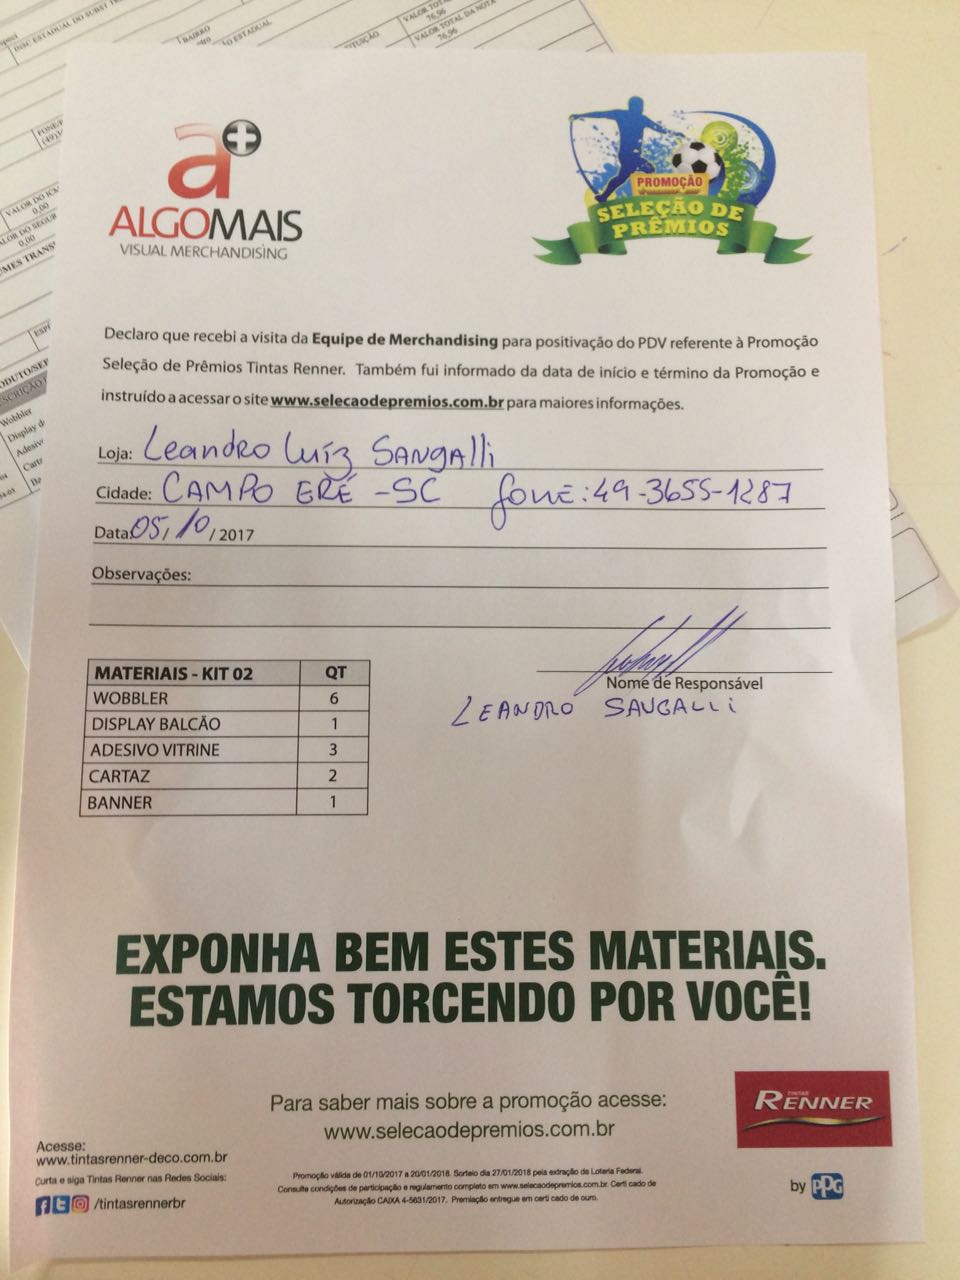 INSC ESTADUAL DO SUBST
BAIRRO
VALOR TOTAL DA NOTA
76,96
76,96
VALOR DO ICM
0,00
0,00
Wobbler
a+
ALGOMAIS
VISUAL MERCHANDISING
PROMOÇÃO
SELEÇÃO DE
PRÊMIOS
Declaro que recebi a visita da Equipe de Merchandising para positivação do PDV referente à Promoção
Seleção de Prêmios Tintas Renner. Também fui informado da data de início e término da Promoção e
instruído a acessar o site www.selecaodepremios.com.br para maiores informações.
Loja: Leandro Luiz Sangalli
Cidade: CAMPO ERÊ - SC fone: 49-3655-1287
Data: 05/10/2017
Observações:
Nome de Responsável
LEANDRO SANGALLI
MATERIAIS - KIT 02 QT
WOBBLER 6
DISPLAY BALCÃO 1
ADESIVO VITRINE 3
CARTAZ 2
BANNER 1
EXPONHA BEM ESTES MATERIAIS.
ESTAMOS TORCENDO POR VOCÊ!
Para saber mais sobre a promoção acesse:
www.selecaodepremios.com.br
TINTAS
RENNER
Acesse:
www.tintasrenner-deco.com.br
Curta e siga Tintas Renner nas Redes Sociais:
/tintasrennerbr
Promoção válida de 01/10/2017 a 20/01/2018. Sorteio dia 27/01/2018 pela extração da Loteria Federal.
Consulte condições de participação e regulamento completo em www.selecaodepremios.com.br. Certi cado de
Autorização CAIXA 4-5631/2017. Premiação entregue em certi cado de ouro.
by PPG